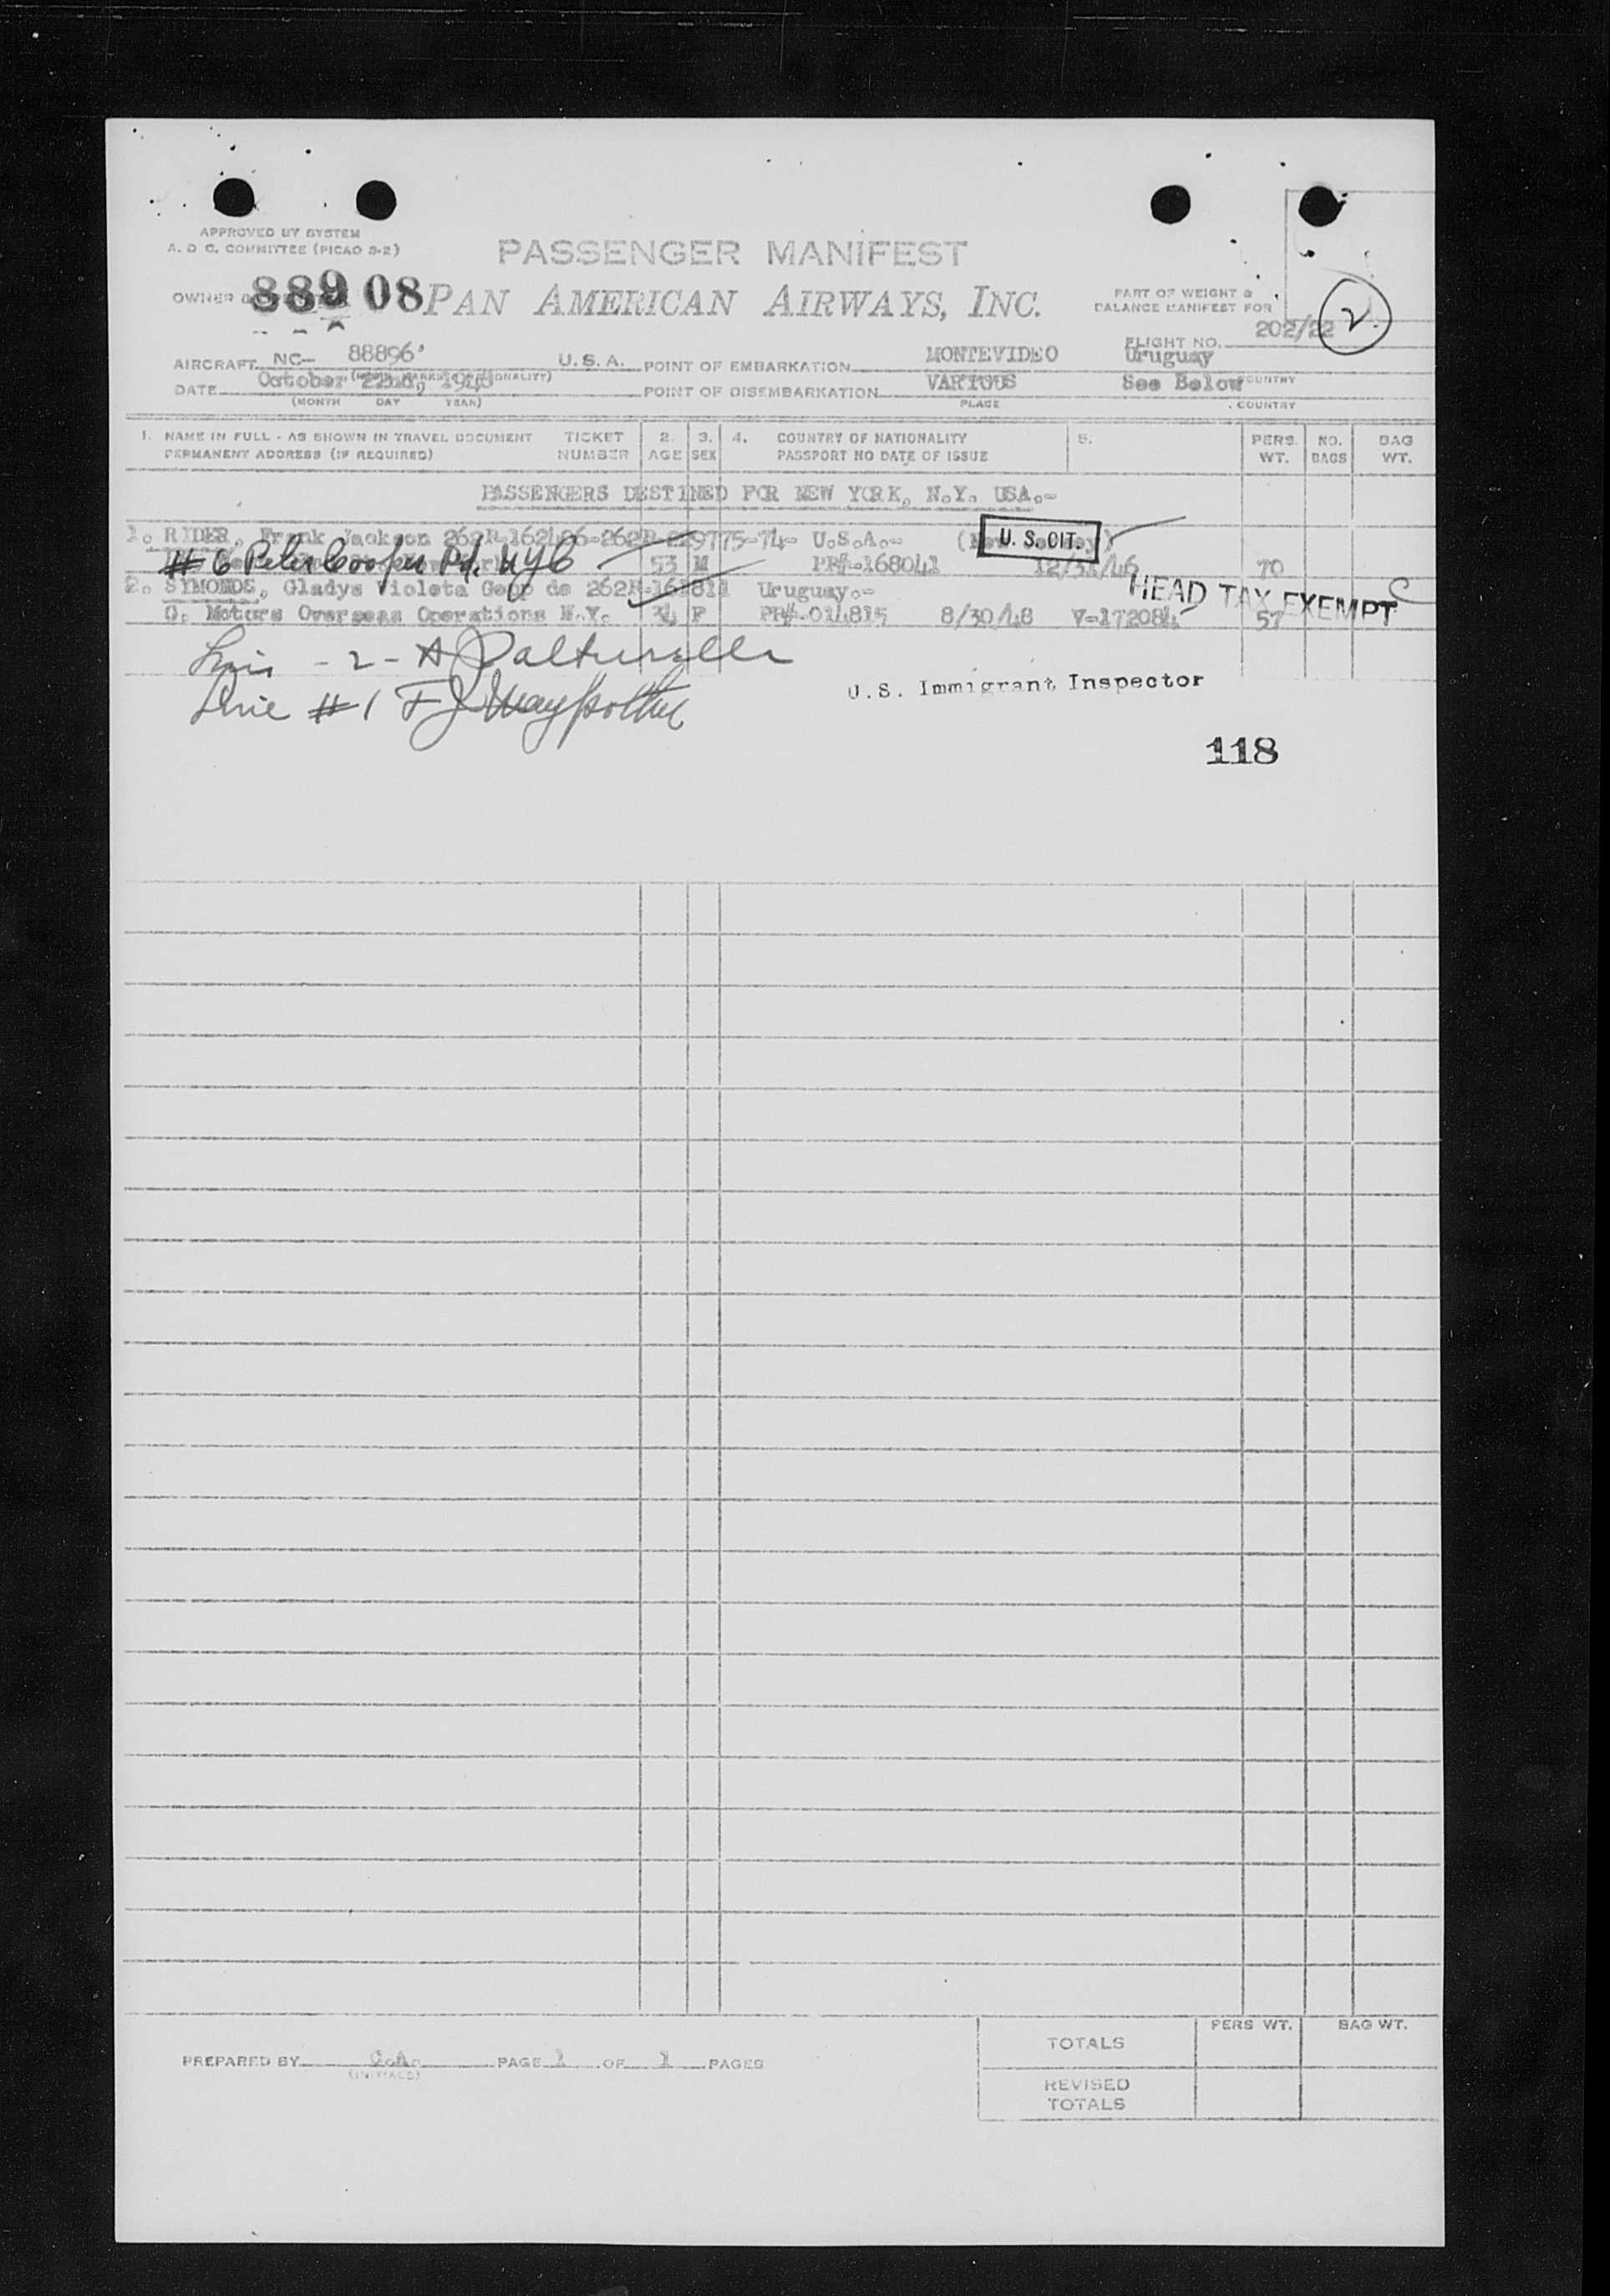 APPROVED BY SYSTEM
A. O C. COMMITTEE (PICAO 3-2)
PASSENGER MANIFEST
OWNER 88908 PAN AMERICAN AIRWAYS, INC.
PART OF WEIGHT &
BALANCE MANIFEST FOR
FLIGHT NO. 202/22
2.
AIRCRAFT NC- 88896 U.S.A. POINT OF EMBARKATION MONTEVIDEO Uruguay
DATE October 22nd, POINT OF DISEMBARKATION VARIOUS See Below COUNTRY
(MONTH DAY YEAR) PLACE COUNTRY
1. NAME IN FULL - AS SHOWN IN TRAVEL DOCUMENT TICKET 2. 3. 4. COUNTRY OF NATIONALITY 5. PERS. NO. BAG
PERMANENT ADDRESS (IF REQUIRED) NUMBER AGE SEX PASSPORT NO DATE OF ISSUE WT. BAGS WT.
PASSENGERS DESTINED FOR NEW YORK, N.Y. USA.-
1. RYDER, Frank Jackson 262R-162406-262R-229775-74- U.S.A.- U. S. CIT.
# 6 Peter Cooper Rd. NYC 53 M PP#-168041 12/31/46 70
2. SYMONDS, Gladys Violeta Geop de 262R-161811 Uruguay.- HEAD TAX EXEMPT
G. Motors Overseas Operations N.Y. 34 F PP#-014815 8/30/48 V-172084 57
- 2 -
Line #1 F J
U.S. Immigrant Inspector
118
PREPARED BY (INITIALS) PAGE 1 OF 1 PAGES
TOTALS PERS WT. BAG WT.
REVISED
TOTALS